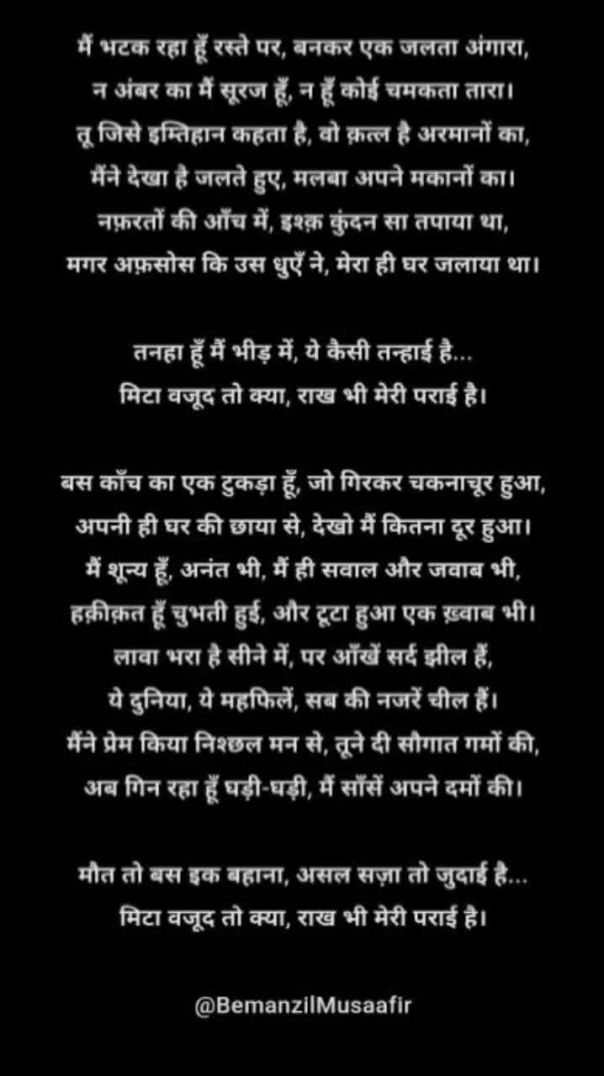 मैं भटक रहा हूँ रस्ते पर, बनकर एक जलता अंगारा,
न अंबर का मैं सूरज हूँ, न हूँ कोई चमकता तारा।
तू जिसे इम्तिहान कहता है, वो क़त्ल है अरमानों का,
मैंने देखा है जलते हुए, मलबा अपने मकानों का।
नफ़रतों की आँच में, इश्क़ कुंदन सा तपाया था,
मगर अफ़सोस कि उस धुएँ ने, मेरा ही घर जलाया था।
तनहा हूँ मैं भीड़ में, ये कैसी तन्हाई है...
मिटा वजूद तो क्या, राख भी मेरी पराई है।
बस काँच का एक टुकड़ा हूँ, जो गिरकर चकनाचूर हुआ,
अपनी ही घर की छाया से, देखो मैं कितना दूर हुआ।
मैं शून्य हूँ, अनंत भी, मैं ही सवाल और जवाब भी,
हक़ीक़त हूँ चुभती हुई, और टूटा हुआ एक ख़्वाब भी।
लावा भरा है सीने में, पर आँखें सर्द झील हैं,
ये दुनिया, ये महफिलें, सब की नजरें चील हैं।
मैंने प्रेम किया निश्छल मन से, तूने दी सौगात गमों की,
अब गिन रहा हूँ घड़ी-घड़ी, मैं साँसें अपने दमों की।
मौत तो बस इक बहाना, असल सज़ा तो जुदाई है...
मिटा वजूद तो क्या, राख भी मेरी पराई है।
@BemanzilMusaafir